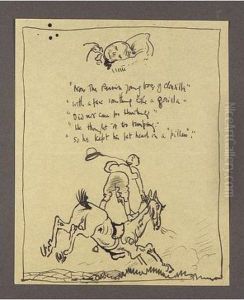 "Now The young boy of
"with a face something like a gorilla"
"Did not care for Hunting"
"He thought it too bumping"
"So he kept his fat head in a "pillow"."